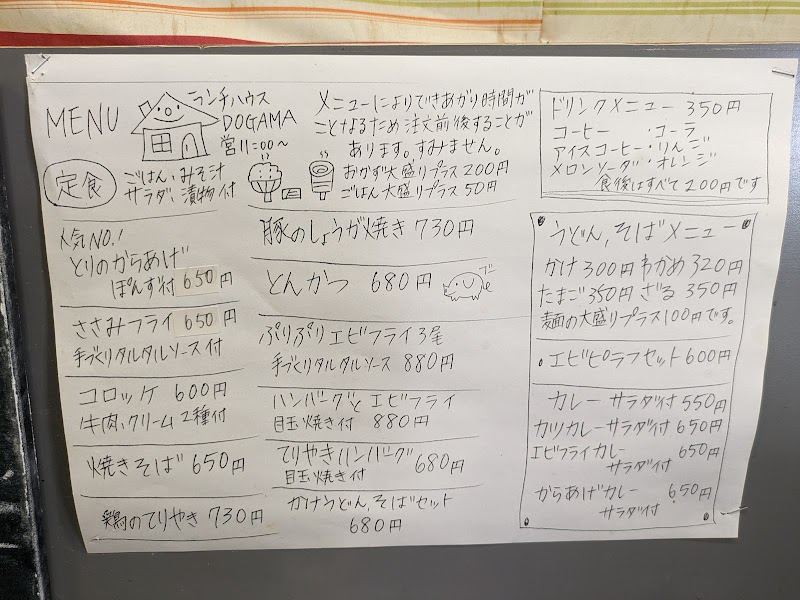 MENU
ランチハウス
DOGAMA
営11:00〜
メニューによりできあがり時間が
ことなるため注文前後することが
あります。すみません。
おかず大盛りプラス200円
ごはん大盛りプラス50円
定食
ごはん、みそ汁
サラダ、漬物付
人気NO.1
とりのからあげ
ぽんず付 650円
ささみフライ 650円
手づくりタルタルソース付
コロッケ 600円
牛肉、クリーム 2種付
焼きそば 650円
鶏のてりやき 730円
豚のしょうが焼き 730円
とんかつ 680円
ブー
ぷりぷりエビフライ3尾
手づくりタルタルソース 880円
ハンバーグとエビフライ
目玉焼き付 880円
てりやきハンバーグ 680円
目玉焼き付
かけうどん、そばセット
680円
ドリンクメニュー 350円
コーヒー ・コーラ
アイスコーヒー・りんご
メロンソーダ・オレンジ
食後はすべて200円です
うどん、そばメニュー
かけ300円 わかめ320円
たまご350円 ざる350円
麺の大盛りプラス100円です。
・エビピラフセット600円
カレー サラダ付 550円
カツカレーサラダ付 650円
エビフライカレー 650円
サラダ付
からあげカレー 650円
サラダ付